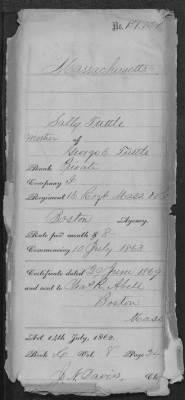 No.
Massachusetts
Sally Tuttle
mother of
George E. Tuttle
Rank Private
Company
Regiment 16 Regt Mass Vols
Boston Agency.
Rate per month $ 8.
Commencing 10 July 1863
Certificate dated 29 June 1869
and sent to R. Abell
Boston
Mass
Act 14th July, 1862.
Book Vol. 8 Page 24
Davis, Clk.